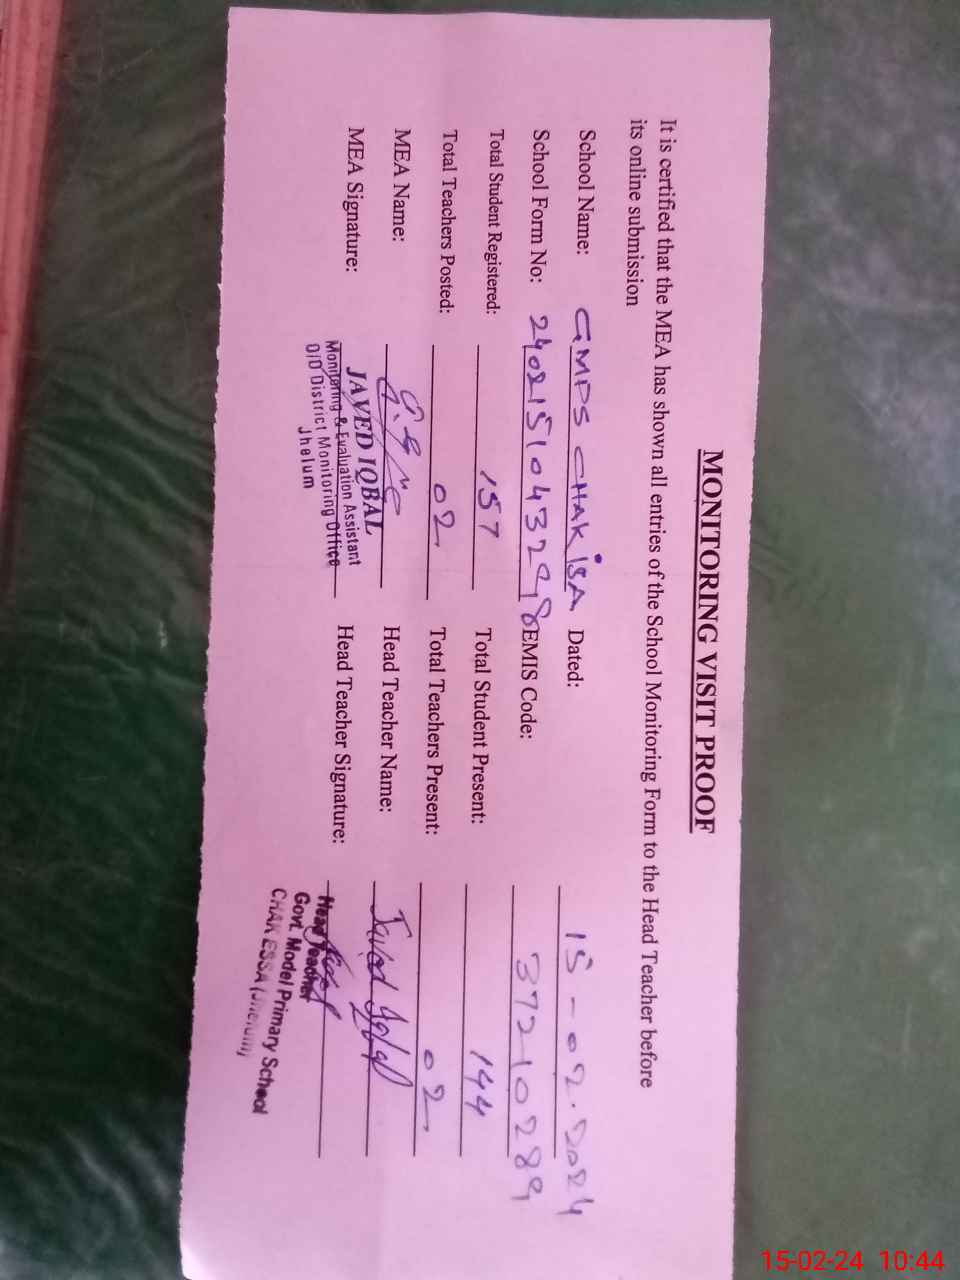 MONITORING VISIT PROOF
It is certified that the MEA has shown all entries of the School Monitoring Form to the Head Teacher before
its online submission
School Name: GMPS CHAK ISA Dated: 15-02.2024
School Form No: 24021510437298 EMIS Code: 37210289
Total Student Registered: 157 Total Student Present: 144
Total Teachers Posted: 02 Total Teachers Present: 02
MEA Name: Head Teacher Name: Javed Iqbal
MEA Signature: Head Teacher Signature:
JAVED IQBAL
Monitoring & Evaluation Assistant
O/O District Monitoring Office
Jhelum
Head Teacher
Govt. Model Primary School
CHAK ESSA (Jhelum)
15-02-24 10:44